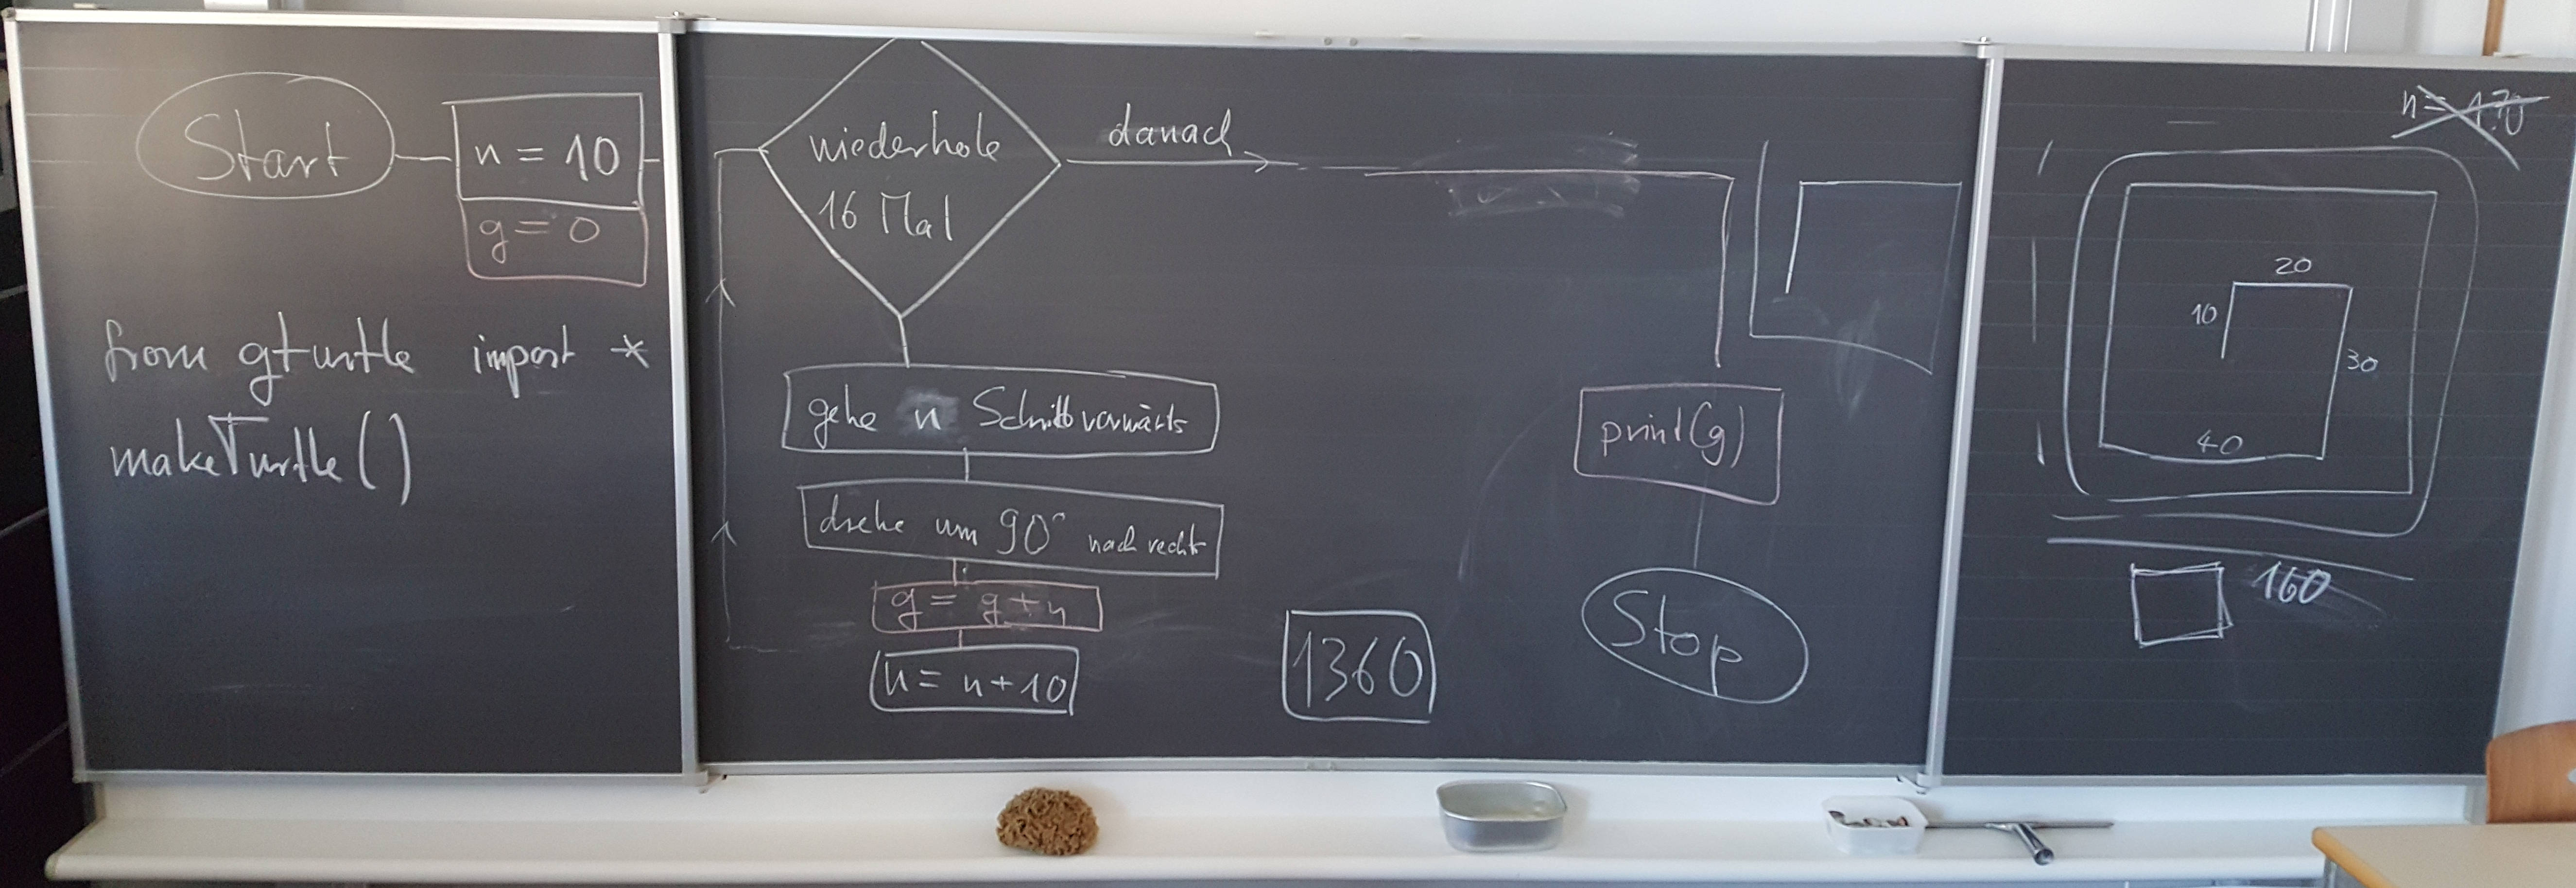 Start
n = 10
g = 0
from gturtle import *
makeTurtle()
wiederhole
16 Mal
danach
gehe n Schritt vorwärts
drehe um 90° nach rechts
g = g + n
n = n + 10
1360
print(g)
Stop
n = 170
20
10
30
40
160